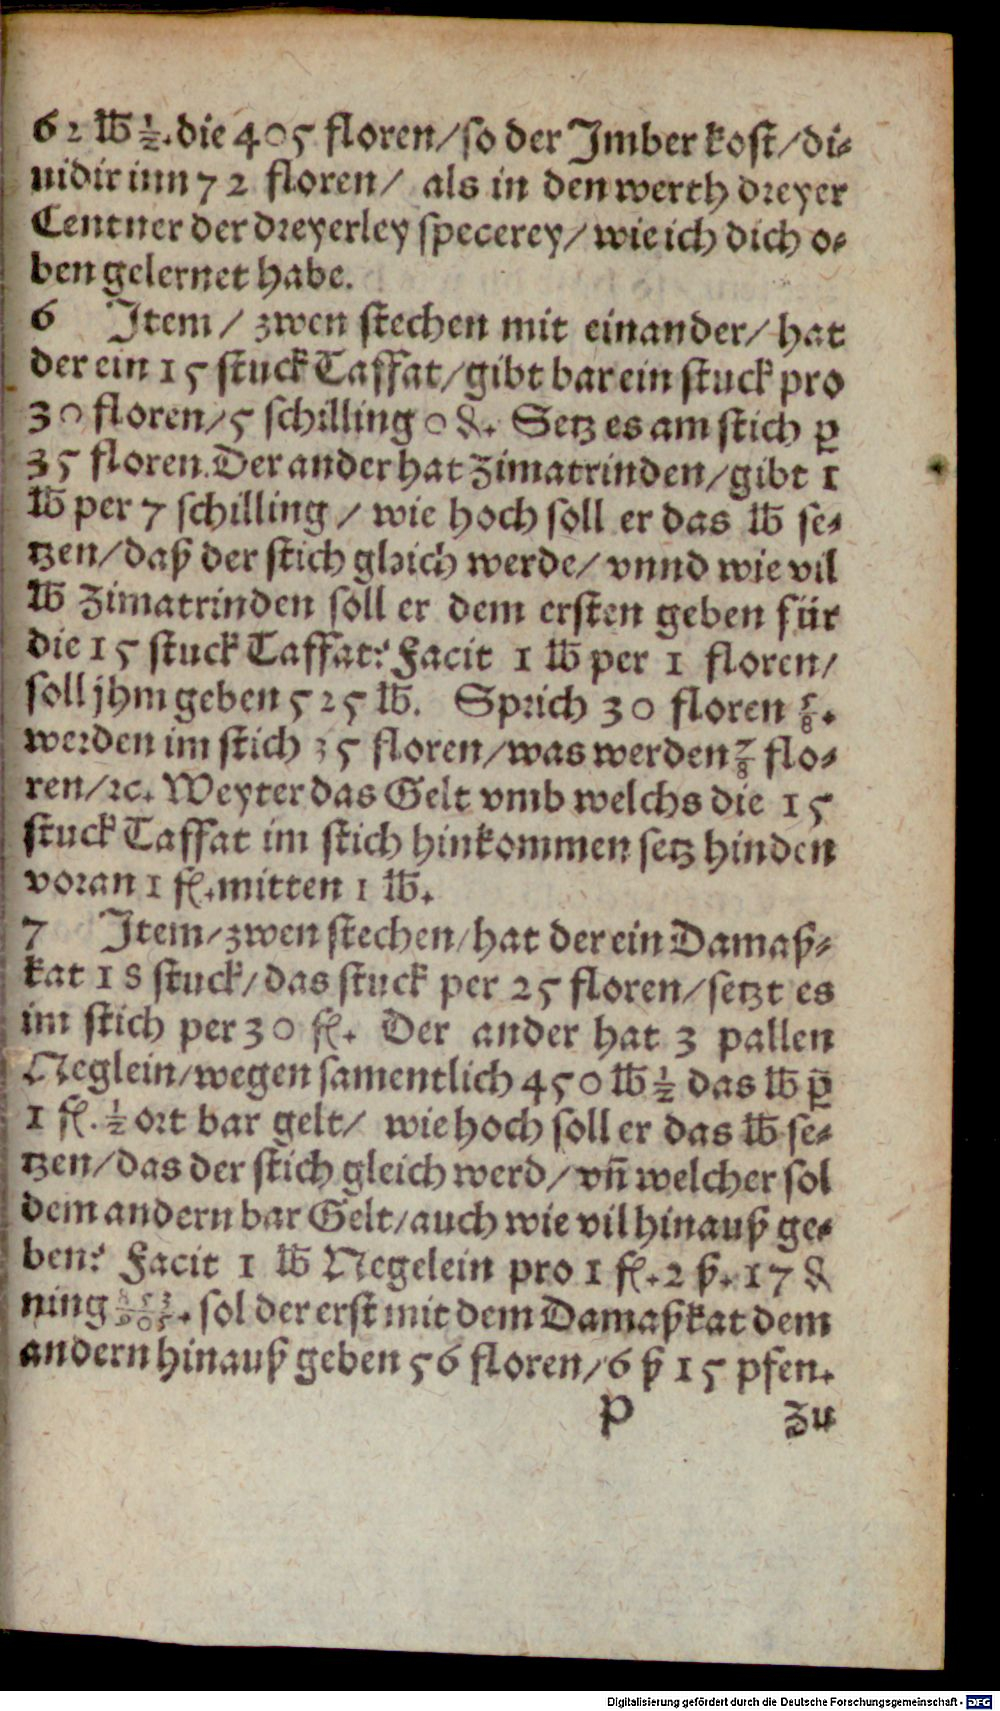 62 ℔ ½. die 405 floren/ so der Jmber kost/ di⸗
uidir inn 72 floren/ als in den werth dreyer
Centner der dreyerley specerey/ wie ich dich o⸗
ben gelernet habe.
6 Jtem/ zwen stechen mit einander/ hat
der ein 15 stuck Taffat/ gibt bar ein stuck pro
30 floren/ 5 schilling 0 ₰. Setz es am stich ꝑ
35 floren. Der ander hat Zimatrinden/ gibt 1
℔ per 7 schilling / wie hoch soll er das ℔ se⸗
tzen/ daß der stich gleich werde/ vnnd wie vil
℔ Zimatrinden soll er dem ersten geben für
die 15 stuck Taffat? Facit 1 ℔ per 1 floren/
soll jhm geben 525 ℔. Sprich 30 floren ⅝.
werden im stich 35 floren/ was werden ⅞ flo⸗
ren/ ꝛc. Weyter das Gelt vmb welchs die 15
stuck Taffat im stich hinkommen setz hinden
voran 1 fl. mitten 1 ℔.
7 Jtem/ zwen stechen/ hat der ein Damaß⸗
kat 18 stuck/ das stuck per 25 floren/ setzt es
im stich per 30 fl. Der ander hat 3 pallen
Neglein/ wegen samentlich 450 ℔ ½ das ℔ ꝑ
1 fl. ½ ort bar gelt/ wie hoch soll er das ℔ se⸗
tzen/ das der stich gleich werd/ vñ welcher sol
dem andern bar Gelt/ auch wie vil hinauß ge⸗
ben? Facit 1 ℔ Negelein pro 1 fl. 2 ß. 17 ₰
ning . sol der erst mit dem Damaßkat dem
andern hinauß geben 56 floren/ 6 ß 15 pfen.
P zu
Digitalisierung gefördert durch die Deutsche Forschungsgemeinschaft - DFG